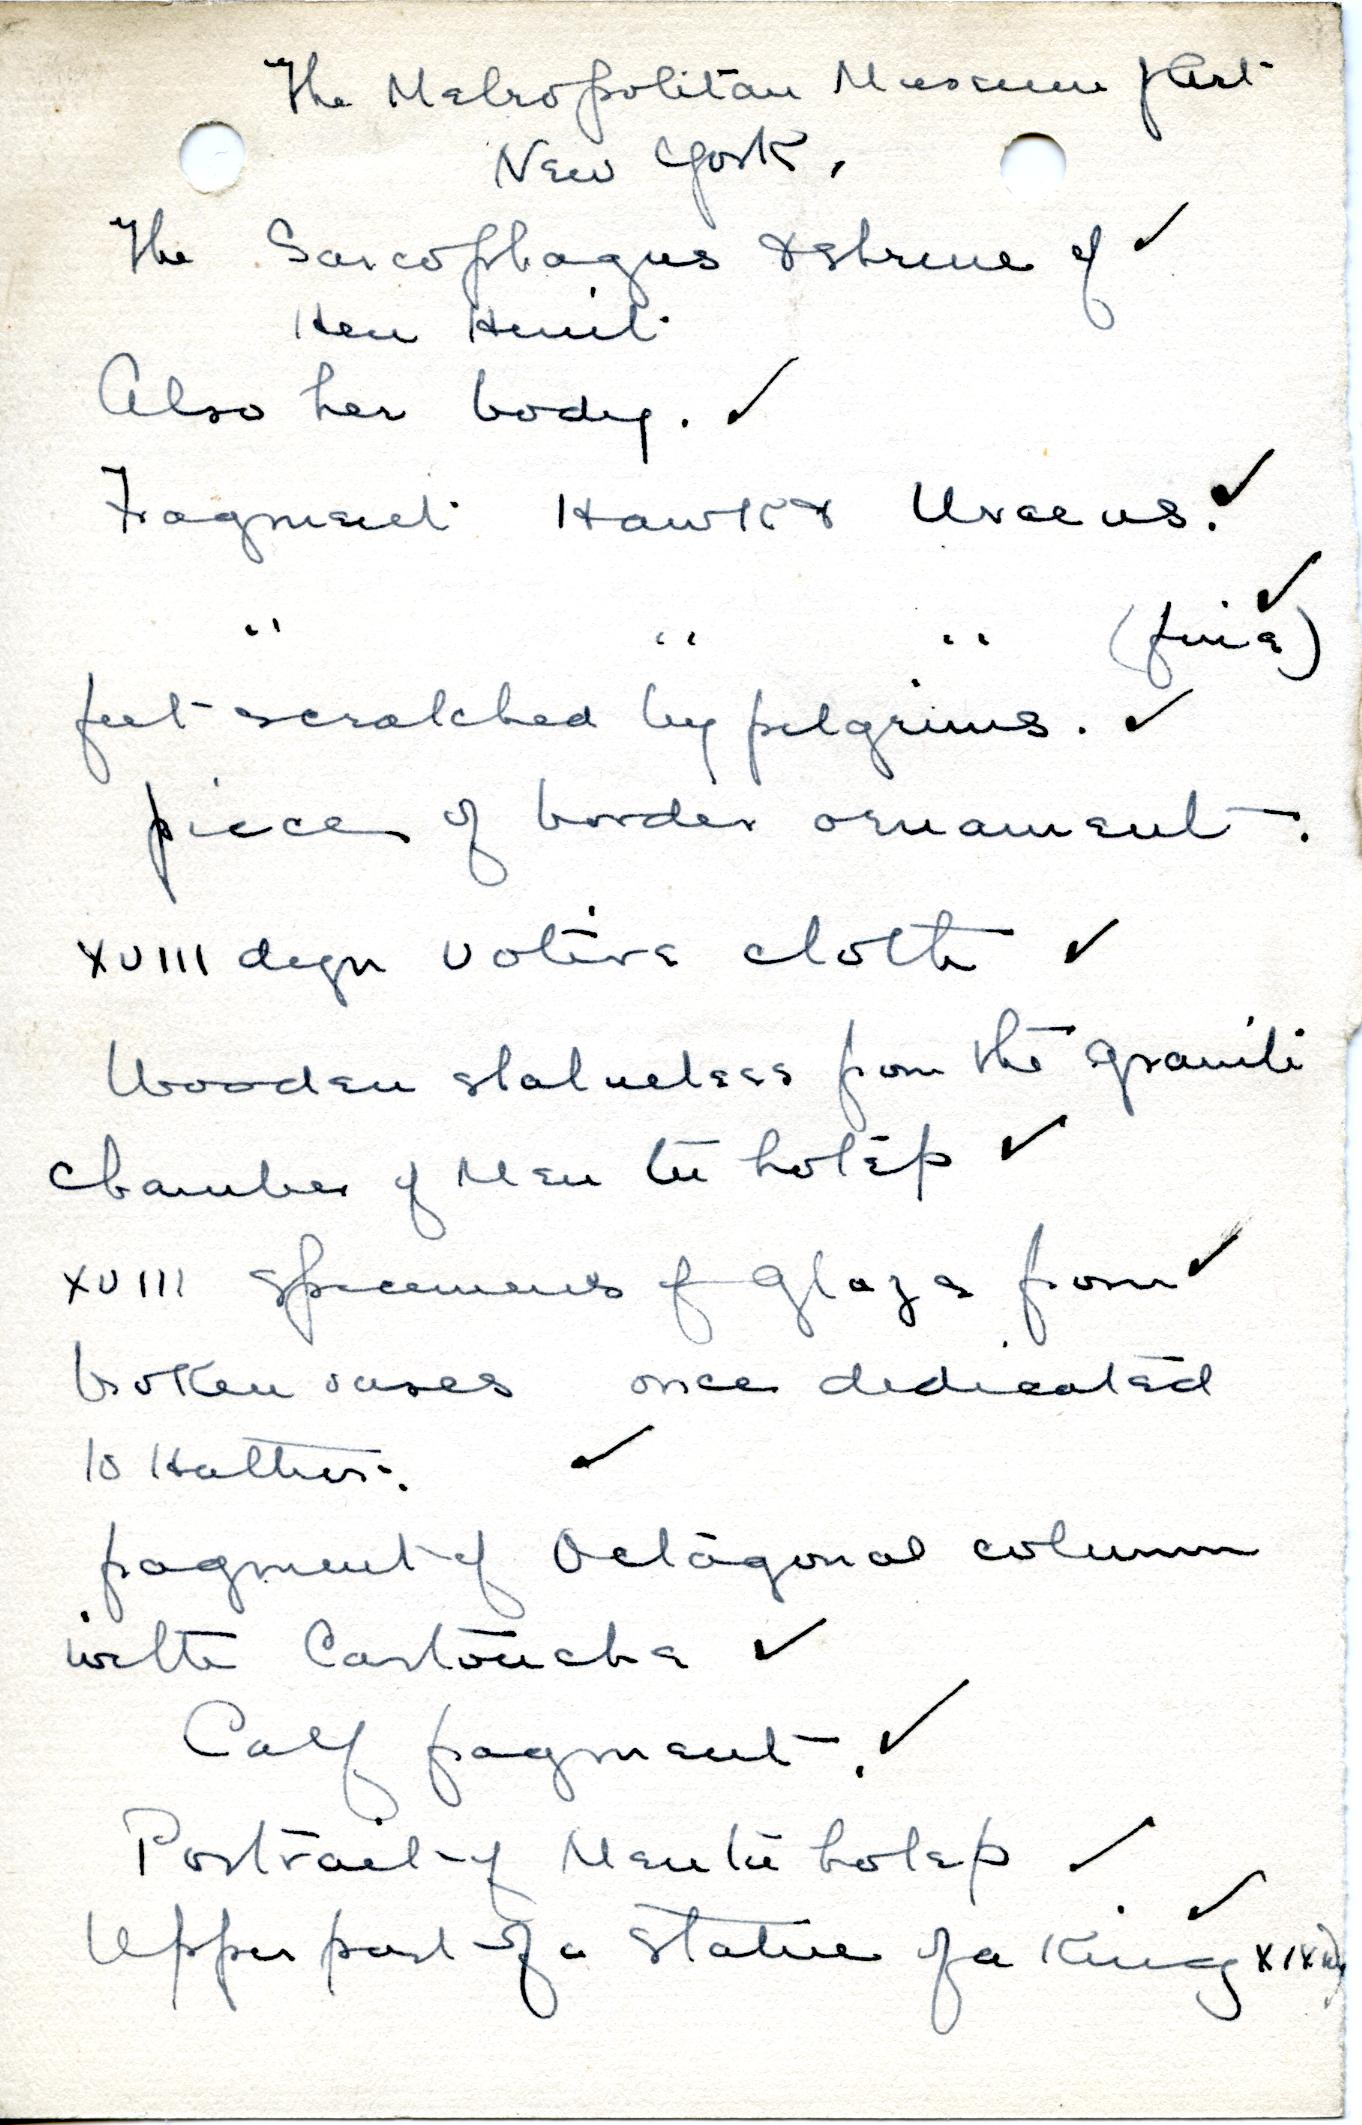 The Metropolitan Museum of Art
New York.
The Sarcophagus & shrine of ✓
Hen Henit
Also her body. ✓
Fragment Hawk & Uraeus. ✓
" " " (fine) ✓
feet scratched by pilgrims. ✓
pieces of border ornament.
XVIII dyn votive cloth ✓
Wooden statuettes from the granite
chamber of Men tu hotep ✓
XVIII specimens of glaze from ✓
broken vases once dedicated
to Hathor. ✓
fragment of Octagonal column
with Cartouche ✓
Calf fragment. ✓
Portrait of Mentu hotep ✓
Upper part of a statue of a King XIX dy ✓